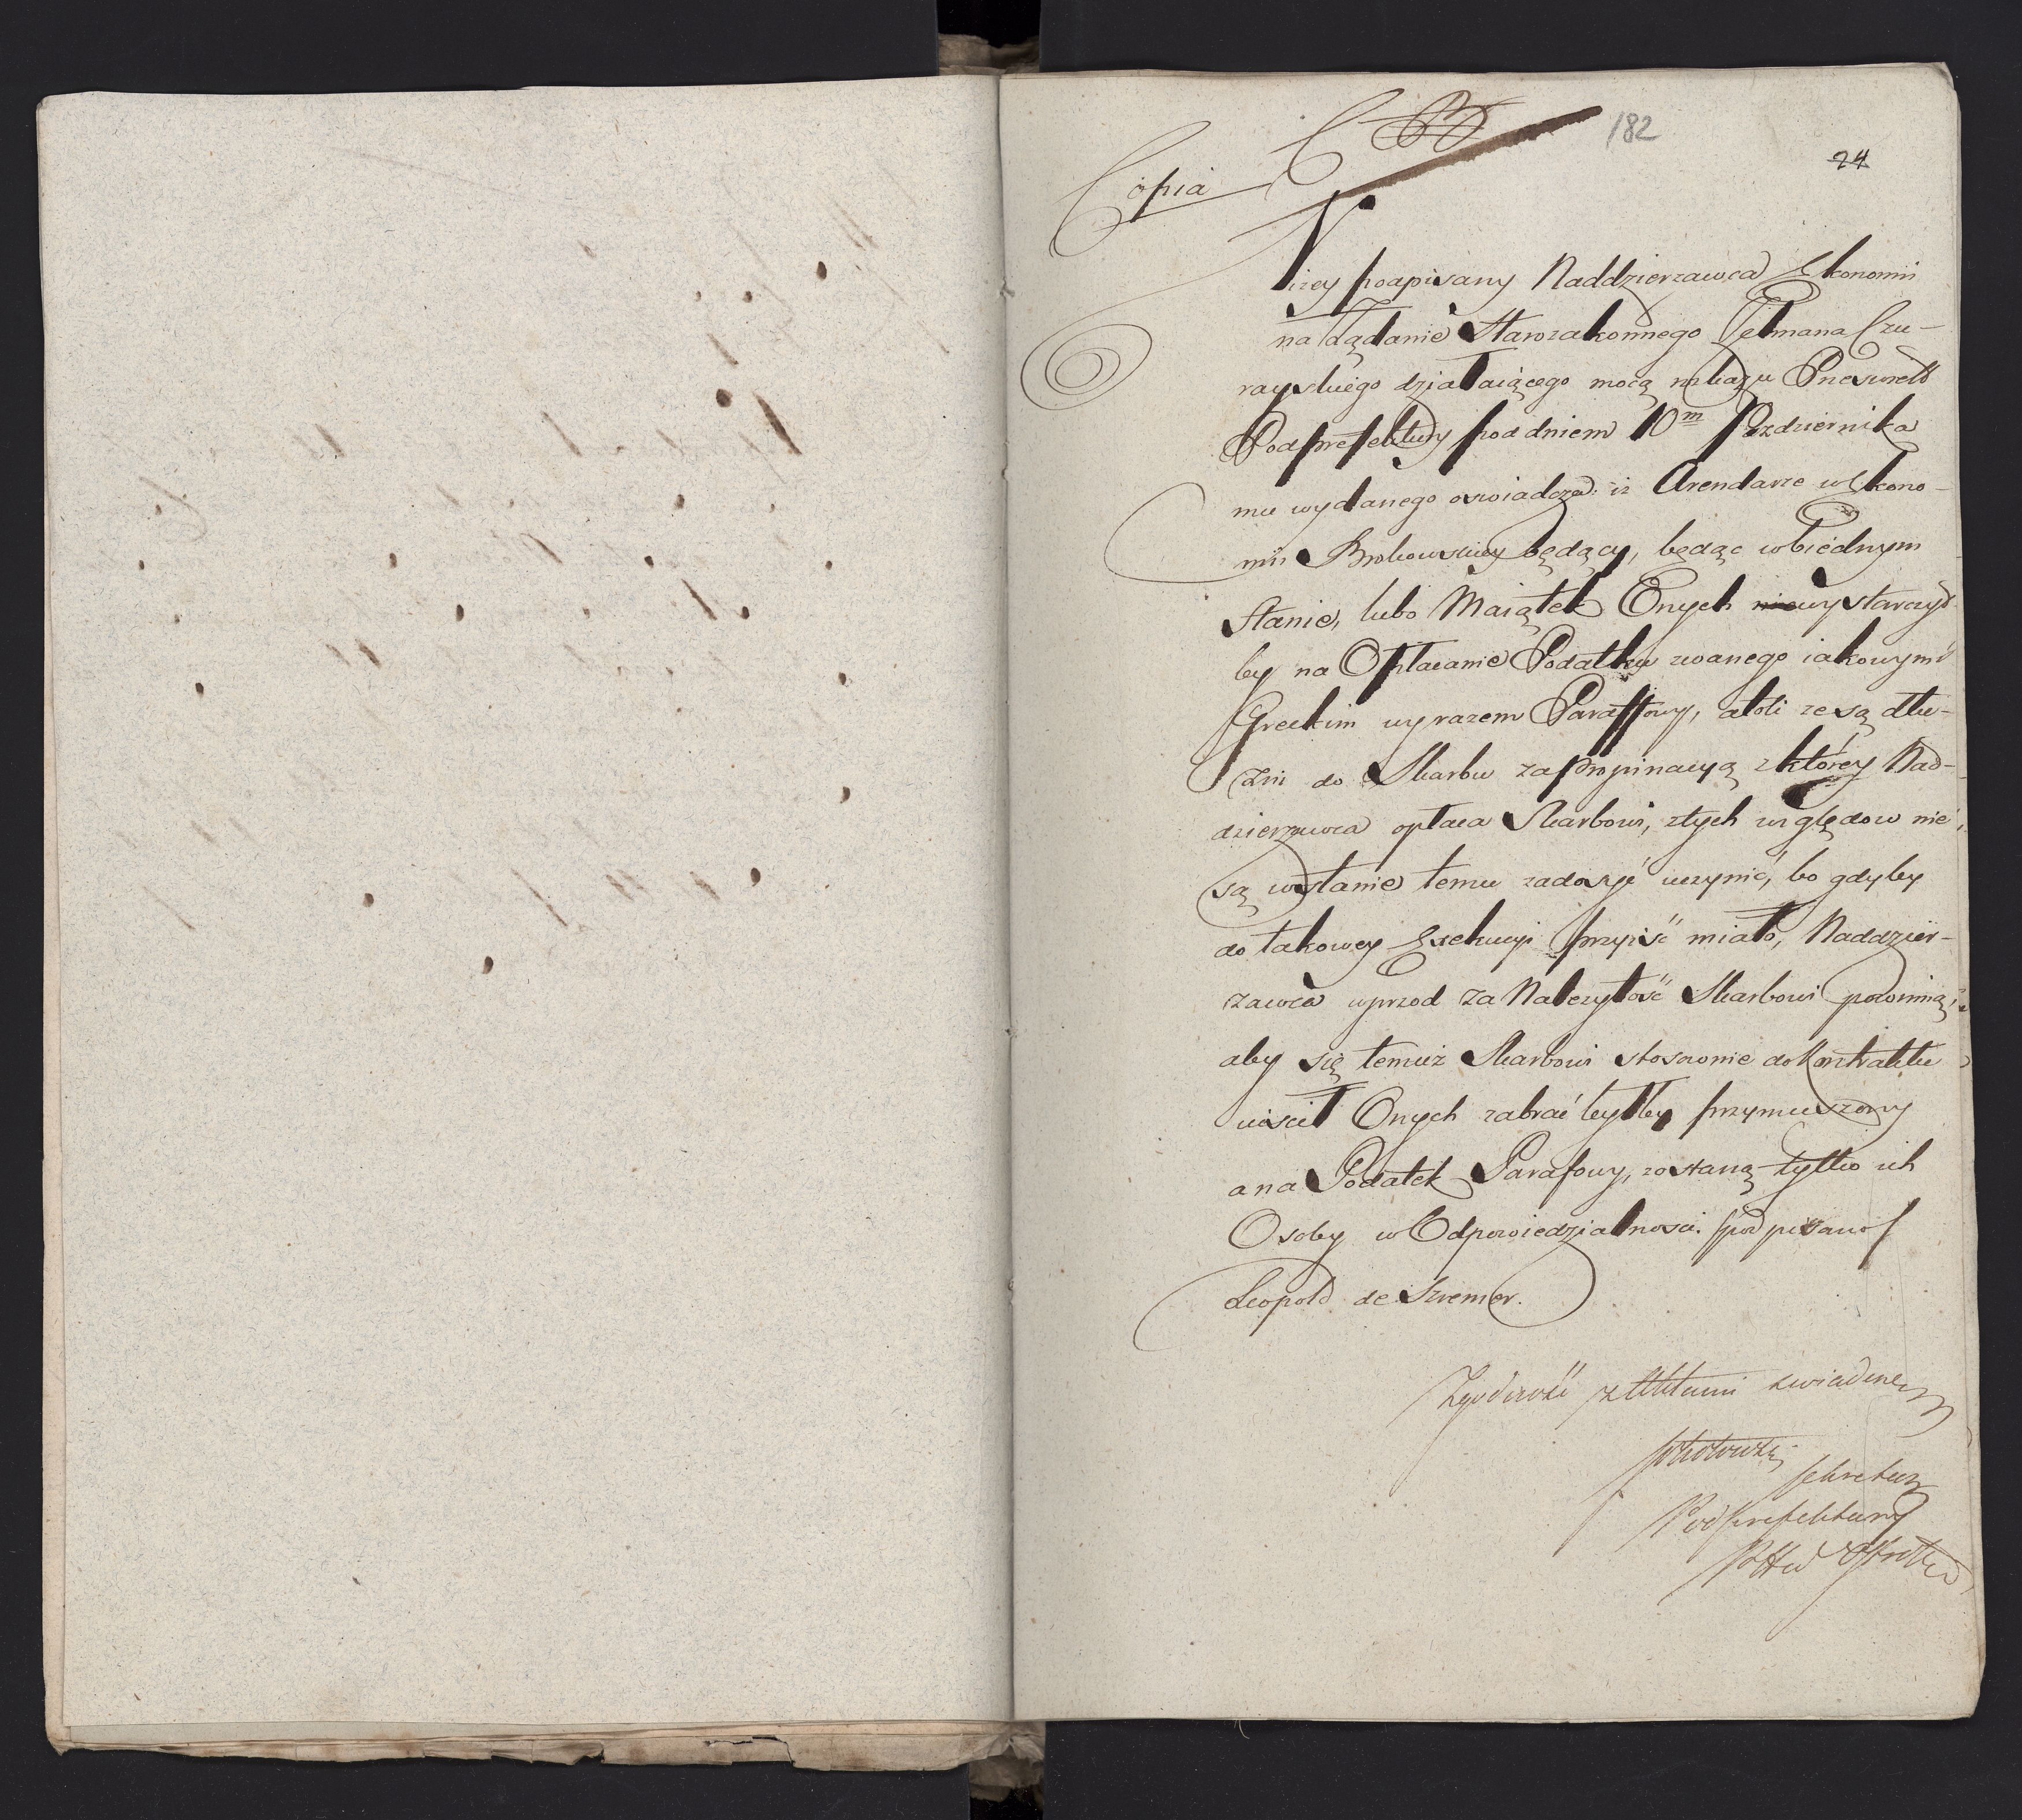 182
24
Copia
Niżey podpisany Naddzierzawca Ekonomii
na Żądanie Starozakonnego Zelmana Czu-
rayskiego działaiącego mocą nakazu Przeświett
Podprefektury pod dniem 10m Pazdziernika
mu wydanego oswiadcza: iż Arendarze w Ekono-
mii Brokowskiey będący, będąc w biednym
Stanie, lubo Maiątek Onych wystarczył
by na Opłacanie Podatku zwanego iakowymś
Greckim wyrazem Paraffowy, atoli że są dłu-
żni do Skarbu za propinacyą z którey Nad-
dzierzawca opłaca Skarbowi, z tych względow nie
są w stanie temu zadosyć uczynić, bo gdyby
do takowey Exekucyi przyiść miało, Naddzier-
zawca wprzod za Należytość Skarbowi powinną,
aby się temuż Skarbowi stosownie do Kontraktu
uiścił Onych zabrać byłby przymuszony
a na Podatek Parafowy, zostaną tylko ich
Osoby w Odpowiedzialnosci. podpisano/
Leopold de Szremer.
Zgodność z Aktami zwiadcze
Sekretarz
Podprefektury
Pttu